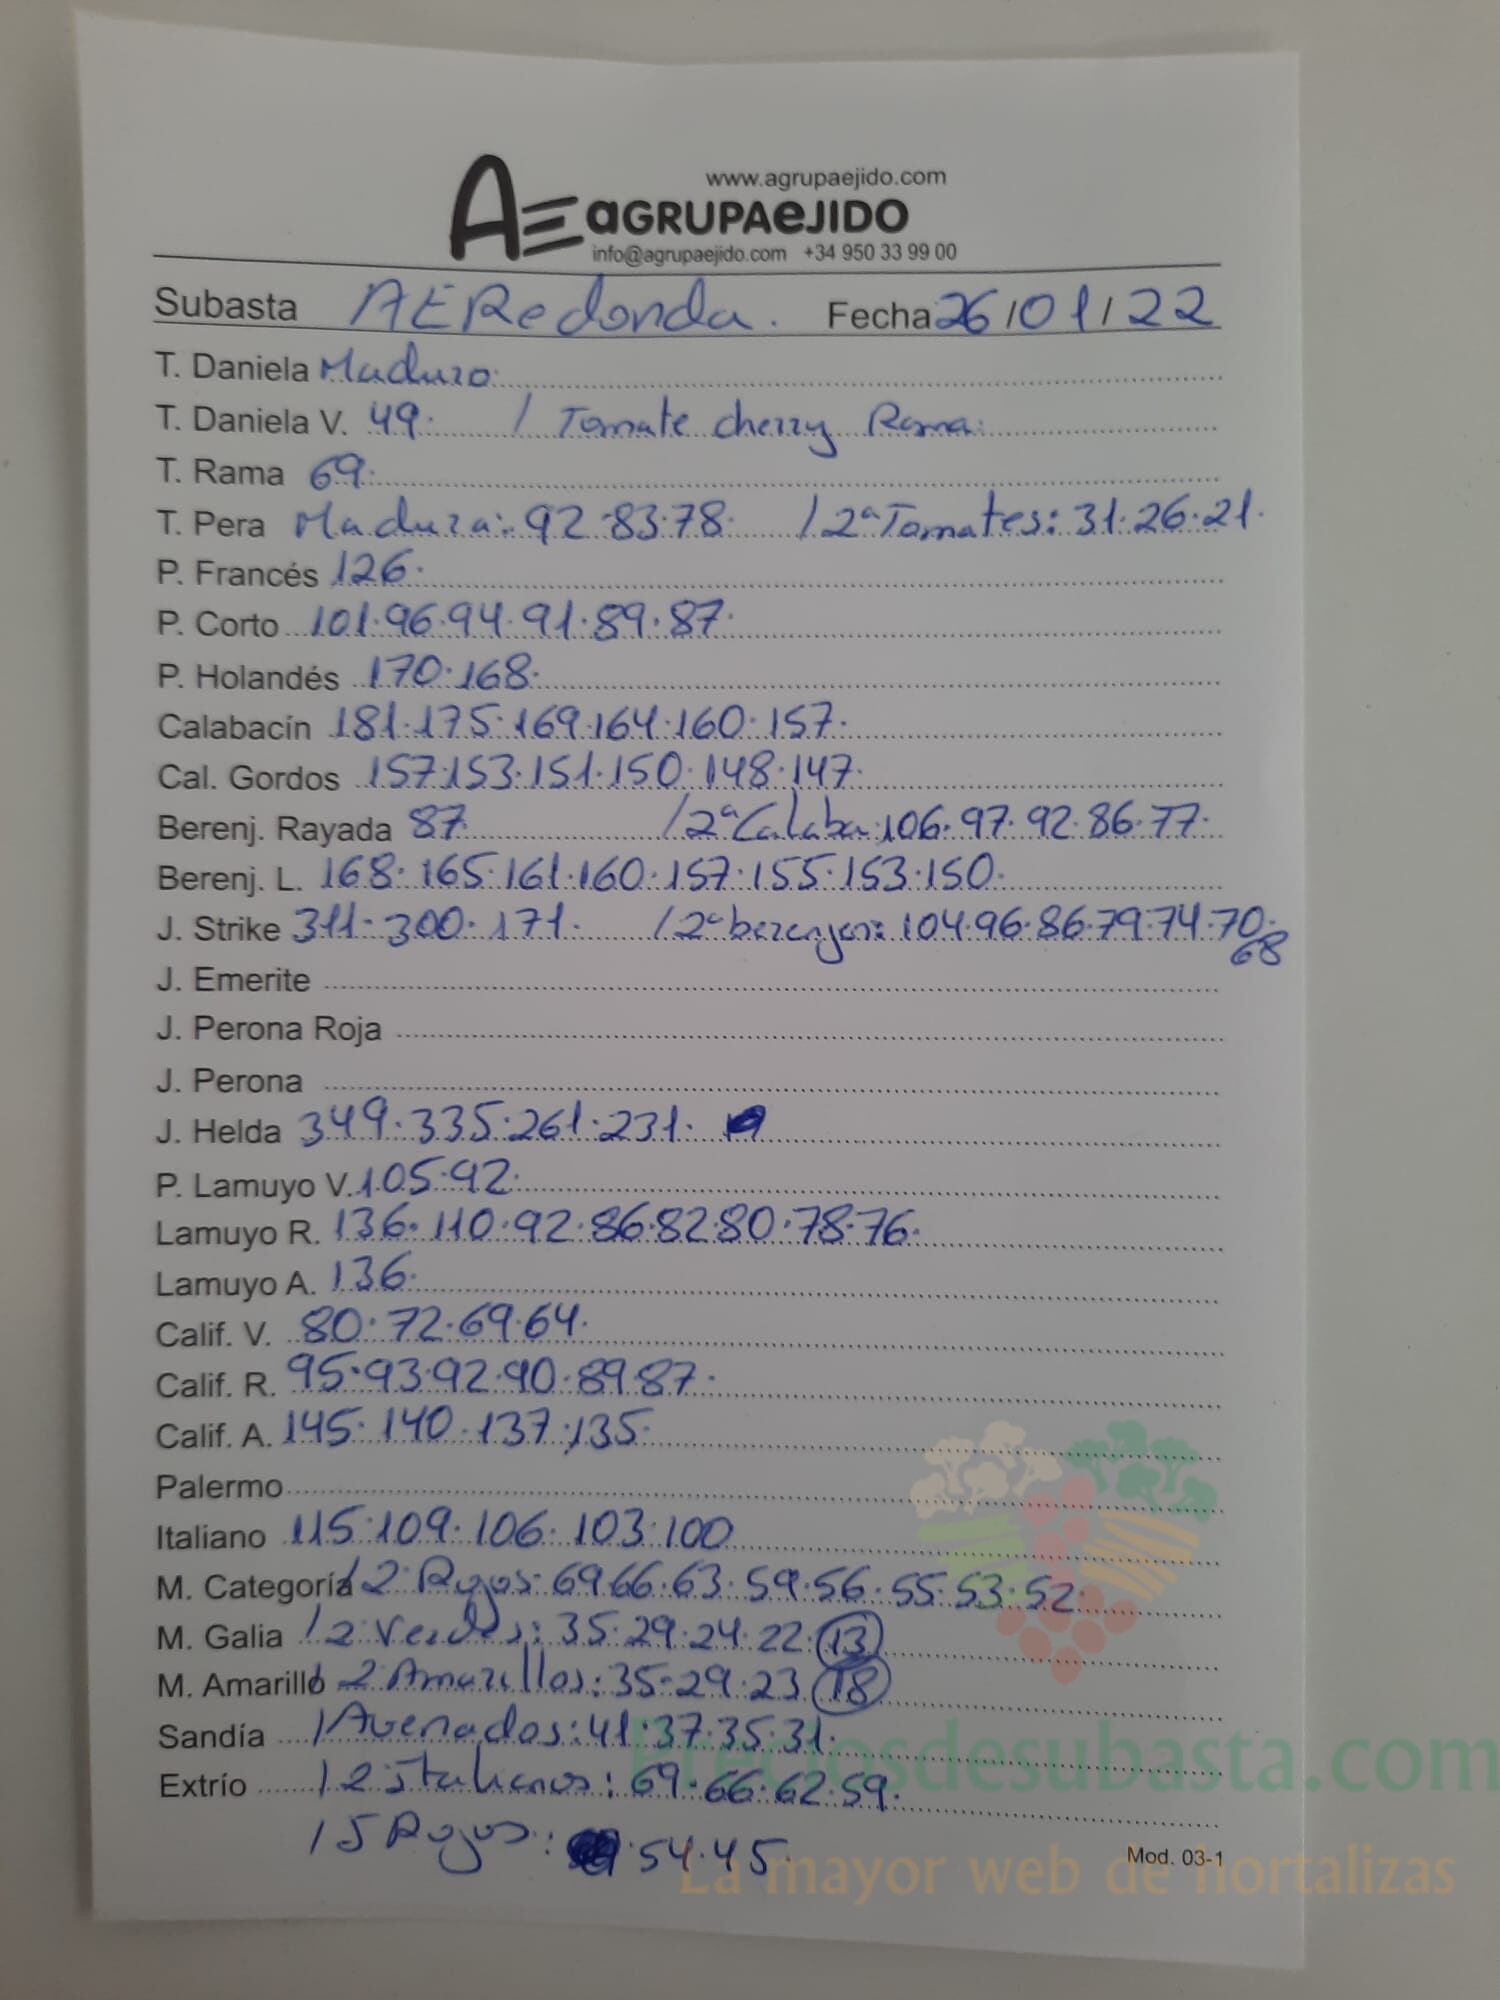 www.agrupaejido.com
AE aGRUPAeJIDO
info@agrupaejido.com +34 950 33 99 00
Subasta AERedonda. Fecha 26/01/22
T. Daniela Maduro
T. Daniela V. 49. / Tomate cherry Rama:
T. Rama 69.
T. Pera Madura: 92.83.78. / 2ª Tomates: 31.26.21.
P. Francés 126.
P. Corto 101.96.94.91.89.87.
P. Holandés 170.168.
Calabacín 181.175.169.164.160.157.
Cal. Gordos 157.153.151.150.148.147.
Berenj. Rayada 87. /2ª Calaba: 106.97.92.86.77.
Berenj. L. 168.165.161.160.157.155.153.150.
J. Strike 311.300.171. /2ª berenjen: 104.96.86.79.74.70.
68
J. Emerite
J. Perona Roja
J. Perona
J. Helda 349.335.261.231.
P. Lamuyo V. 105.92.
Lamuyo R. 136.110.92.86.82.80.78.76.
Lamuyo A. 136.
Calif. V. 80.72.69.64.
Calif. R. 95.93.92.90.89.87.
Calif. A. 145.140.137.135.
Palermo
Italiano 115.109.106.103.100
M. Categoría / 2 Rojos: 69.66.63.59.56.55.53.52.
M. Galia / 2 Verdes: 35.29.24.22.13
M. Amarillo / 2 Amarillos: 35.29.23.18
Sandía / Asenados: 41.37.35.31.
Extrío / 2 Italianos: 69.66.62.59.
/ 5 Rojos: 54.45.
Mod. 03-1
Preciosdesubasta.com
La mayor web de hortalizas